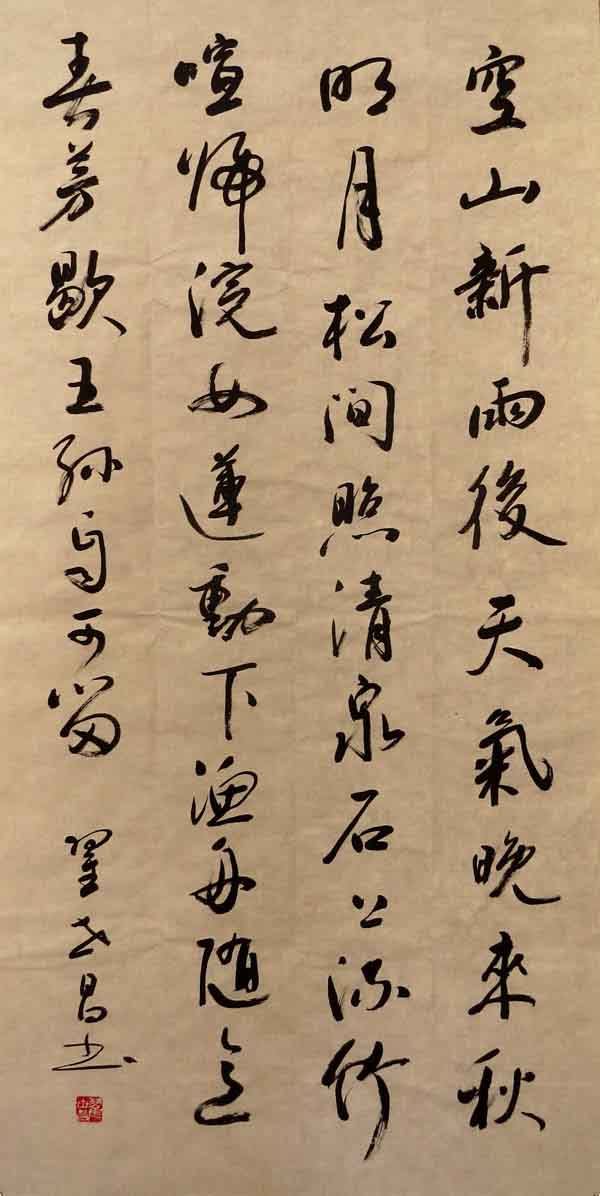 空山新雨後天氣晚來秋
明月松間照清泉石上流竹
喧歸浣女蓮動下漁舟隨意
春芳歇王孫自可留 翟世昌书